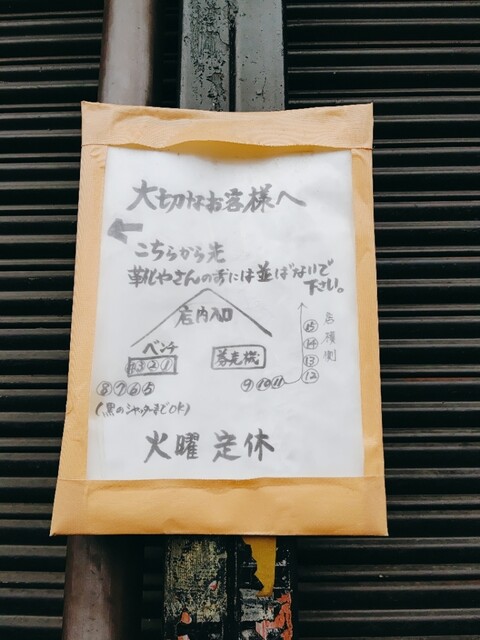 大切なお客様へ
←
こちらから先
靴やさんの方には並ばないで
下さい。
店内入口
ベンチ
④③②①
券売機
⑧⑦⑥⑤
⑨⑩⑪
⑫
⑬
⑭
⑮
店横側
(黒のシャッターまでOK)
火曜 定休